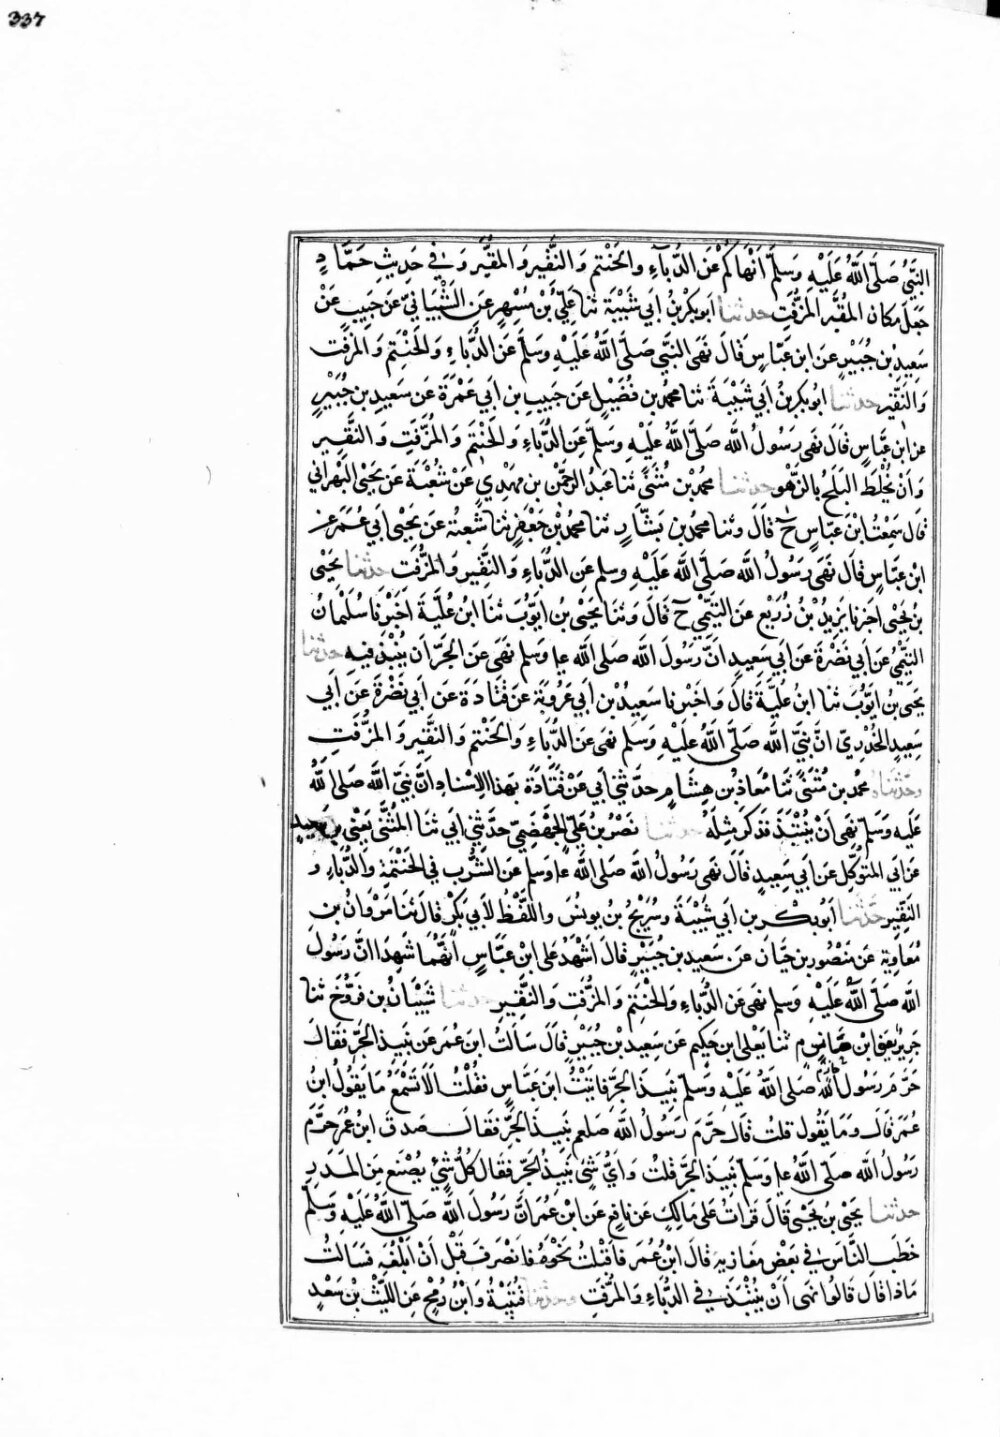 337
النَّبِيُّ صَلَّى اللَّهُ عَلَيْهِ وَسَلَّمَ أَنْهَاكُمْ عَنِ الدُّبَّاءِ وَالحَنْتَمِ وَالنَّقِيْرِ وَالمُقَيَّرِ وَفِي حَدِيْثِ حَمَّادٍ
جَعَلَ مَكَانَ المُقَيَّرِ المُزَفَّتِ حدثنا ابُو بَكْرِ بْنُ ابِي شَيْبَةَ ثنا عَلِيُّ بْنُ مُسْهِرٍ عَنِ الشَّيْبَانِيِّ عَنْ حَبِيبٍ عَنْ
سَعِيدِ بْنِ جُبَيْرٍ عَنِ ابْنِ عَبَّاسٍ قَالَ نَهَى النَّبِيُّ صَلَّى اللَّهُ عَلَيْهِ وَسَلَّمَ عَنِ الدُّبَّاءِ وَالحَنْتَمِ وَالمُزَفَّتِ
وَالنَّقِيْرِ حدثنا ابُو بَكْرِ بْنُ ابِي شَيْبَةَ ثنا مُحَمَّدُ بْنُ فُضَيْلٍ عَنْ حَبِيبِ بْنِ ابِي عَمْرَةَ عَنْ سَعِيدِ بْنِ جُبَيْرٍ
عَنِ ابْنِ عَبَّاسٍ قَالَ نَهَى رَسُولُ اللَّه صَلَّى اللَّهُ عَلَيْهِ وَسَلَّمَ عَنِ الدُّبَّاءِ وَالحَنْتَمِ وَالمُزَفَّتِ وَالنَّقِيْرِ
وَانْ يُخْلَطَ البَلَحُ بِالزَّهْوِ حدثنا مُحَمَّدُ بْنُ مُثَنَّى ثنا عَبْدُ الرَّحْمَنِ بْنُ مَهْدِيٍّ عَنْ شُعْبَةَ عَنْ يَحْيَى البَهْرَانِي
قَالَ سَمِعْتُ ابْنَ عَبَّاسٍ ح قَالَ وثنا مُحَمَّدُ بْنُ بَشَّارٍ ثنا مُحَمَّدُ بْنُ جَعْفَرٍ ثنا شُعْبَةُ عَنْ يَحْيَى ابِي عُمَرَ عَنِ
ابْنِ عَبَّاسٍ قَالَ نَهَى رَسُولُ اللَّه صَلَّى اللَّه عَلَيْهِ وسلم عَنِ الدُّبَّاءِ وَالنَّقِيْرِ وَالمُزَفَّتِ حدثنا يَحْيَى
بْنُ يَحْيَى اخبرنا يَزِيدُ بْنُ زُرَيْعٍ عَنِ التَّيْمِيِّ ح قَالَ وثنا يَحْيَى بْنُ ايُّوبَ ثنا ابْنُ عُلَيَّةَ اخبرنا سُلَيْمَانُ
التَّيْمِيُّ عَنْ ابِي نَضْرَةَ عَنْ ابِي سَعِيدٍ انَّ رَسُولَ اللَّه صَلَى اللَّه علم وسلم نَهَى عَنِ الجَرِّ انْ يُنْبَذَ فِيهِ حدثنا
يَحْيَى بْنُ ايُّوبَ ثنا ابْنُ عُلَيَّةَ قَالَ وَاخبرنا سَعِيدُ بْنُ ابِي عَرُوبَةَ عَنْ قَتَادَةَ عَنْ ابِي نَضْرَةَ عَنْ ابِي
سَعِيدٍ الخُدْرِيِّ انَّ نَبِيَّ اللَّه صَلَّى اللَّهُ عَلَيْهِ وَسَلَّمَ نَهَى عَنِ الدُّبَّاءِ وَالحَنْتَمِ وَالنَّقِيْرِ وَالمُزَفَّتِ
وحدثناه مُحَمَّدُ بْنُ مُثَنَّى ثنا مُعَاذُ بْنُ هِشَامٍ حدثني ابِي عَنْ قَتَادَةَ بِهَذَا الاِسْنَادِ انَّ نَبِيَّ اللَّه صَلَى اللَّهُ
عَلَيْهِ وَسَلَّمَ نَهَى انْ يُنْتَبَذَ فَذَكَرَ مِثْلَهُ حدثنا نَصْرُ بْنُ عَلِيٍّ الجَهْضَمِيُّ حدثني ابِي ثنا المُثَنَّى يَعْنِي بْنَ سَعِيدٍ
عَنْ ابِي المُتَوَكِّلِ عَنْ ابِي سَعِيدٍ قَالَ نَهَى رَسُولُ اللَّه صَلَّى اللَّه علم وسلم عَنِ الشُّرْبِ فِي الحَنْتَمَةِ وَالدُّبَّاءِ وَ
النَّقِيرِ حدثنا ابُو بَكْرِ بْنُ ابِي شَيْبَةَ وَسُرَيْجُ بْنُ يُونُسَ وَاللَّفْظُ لِأَبِي بَكْرٍ قَالَ ثنا مَرْوَانُ بْنُ
مُعَاوِيَةَ عَنْ مَنْصُورِ بْنِ حَيَّانَ عَنْ سَعِيدِ بْنِ جُبَيْرٍ قَالَ اشْهَدُ عَلَى ابْنِ عَبَّاسٍ انَّهُمَا شَهِدَا انَّ رَسُولَ
اللَّه صَلَّى اللَّهُ عَلَيْهِ وسلم نَهَى عَنِ الدُّبَّاءِ وَالحَنْتَمِ وَالمُزَفَّتِ وَالنَّقِيْرِ حدثنا شَيْبَانُ بْنُ فَرُّوخَ ثنا
جَرِيرٌ يَعْنِي ابْنَ حَازِمٍ ثنا يَعْلَى ابْنُ حَكِيمٍ عَنْ سَعِيدِ بْنِ جُبَيْرٍ قَالَ سَالتُ ابْنَ عُمَرَ عَنْ نَبِيذِ الجَرِّ فَقَالَ
حَرَّمَ رَسُولُ اللَّه صَلَى اللَّهُ عَلَيْهِ وَسَلَّمَ نَبِيذَ الجَرِّ فَاتَيْتُ ابْنَ عَبَّاسٍ فَقُلْتُ الاَ تَسْمَعُ مَا يَقُولُ ابْنُ
عُمَرَ قَالَ وَمَا يَقُولُ قلتُ قَالَ حَرَّمَ رَسُولُ اللَّه صلعم نَبِيذَ الجَرِّ فَقَالَ صَدَقَ ابْنُ عُمَرَ حَرَّمَ
رَسُولُ اللَّه صَلَّى اللَّهُ علم وَسَلَّمَ نَبِيذَ الجَرِّ قلتُ وَايُّ شَيْئٍ نَبِيذُ الجَرِّ فَقَالَ كُلُّ شَيْئٍ يُصْنَعُ مِنَ المَدَرِ
حدثنا يَحْيَى بْنُ يَحْيَى قَالَ قَرَاتُ عَلَى مَالِكٍ عَنْ نَافِعٍ عَنِ ابْنِ عُمَرَ انَّ رَسُولَ اللَّه صَلَّى اللَّهُ عَلَيْهِ وَسَلَّمَ
خَطَبَ النَّاسَ فِي بَعْضِ مَغَازِيهِ قَالَ ابْنُ عُمَرَ فَاقْبَلْتُ نَحْوَهُ فَانْصَرَفَ قَبْلَ انْ ابْلُغَهُ فَسَالتُ
مَاذَا قَالَ قَالُوا نَهَى انْ يُنْتَبَذَ فِي الدُّبَّاءِ وَالمُزَفَّتِ وحدثنا قُتَيْبَةُ وَابْنُ رُمْحٍ عَنِ اللَّيْثِ بْنِ سَعْدٍ